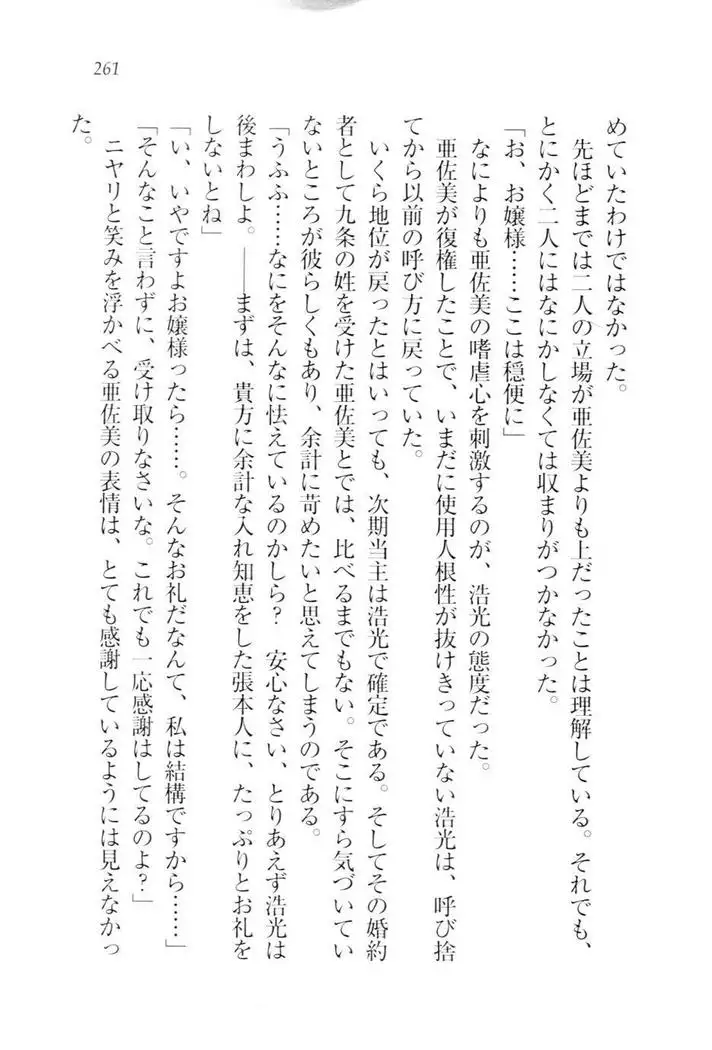 261
めていたわけではなかった。
　先ほどまでは二人の立場が亜佐美よりも上だったことは理解している。それでも、
とにかく二人にはなにかしなくては収まりがつかなかった。
「お、お嬢様……ここは穏便に」
　なによりも亜佐美の嗜虐心を刺激するのが、浩光の態度だった。
　亜佐美が復権したことで、いまだに使用人根性が抜けきっていない浩光は、呼び捨
てから以前の呼び方に戻っていた。
　いくら地位が戻ったとはいっても、次期当主は浩光で確定である。そしてその婚約
者として九条の姓を受けた亜佐美とでは、比べるまでもない。そこにすら気づいてい
ないところが彼らしくもあり、余計に苛めたいと思えてしまうのである。
「うふふ……なにをそんなに怯えているのかしら？　安心なさい、とりあえず浩光は
後まわしよ。――まずは、貴方に余計な入れ知恵をした張本人に、たっぷりとお礼を
しないとね」
「い、いやですよお嬢様ったら……。そんなお礼だなんて、私は結構ですから……」
「そんなこと言わずに、受け取りなさいな。これでも一応感謝はしてるのよ？」
　ニヤリと笑みを浮かべる亜佐美の表情は、とても感謝しているようには見えなかっ
た。